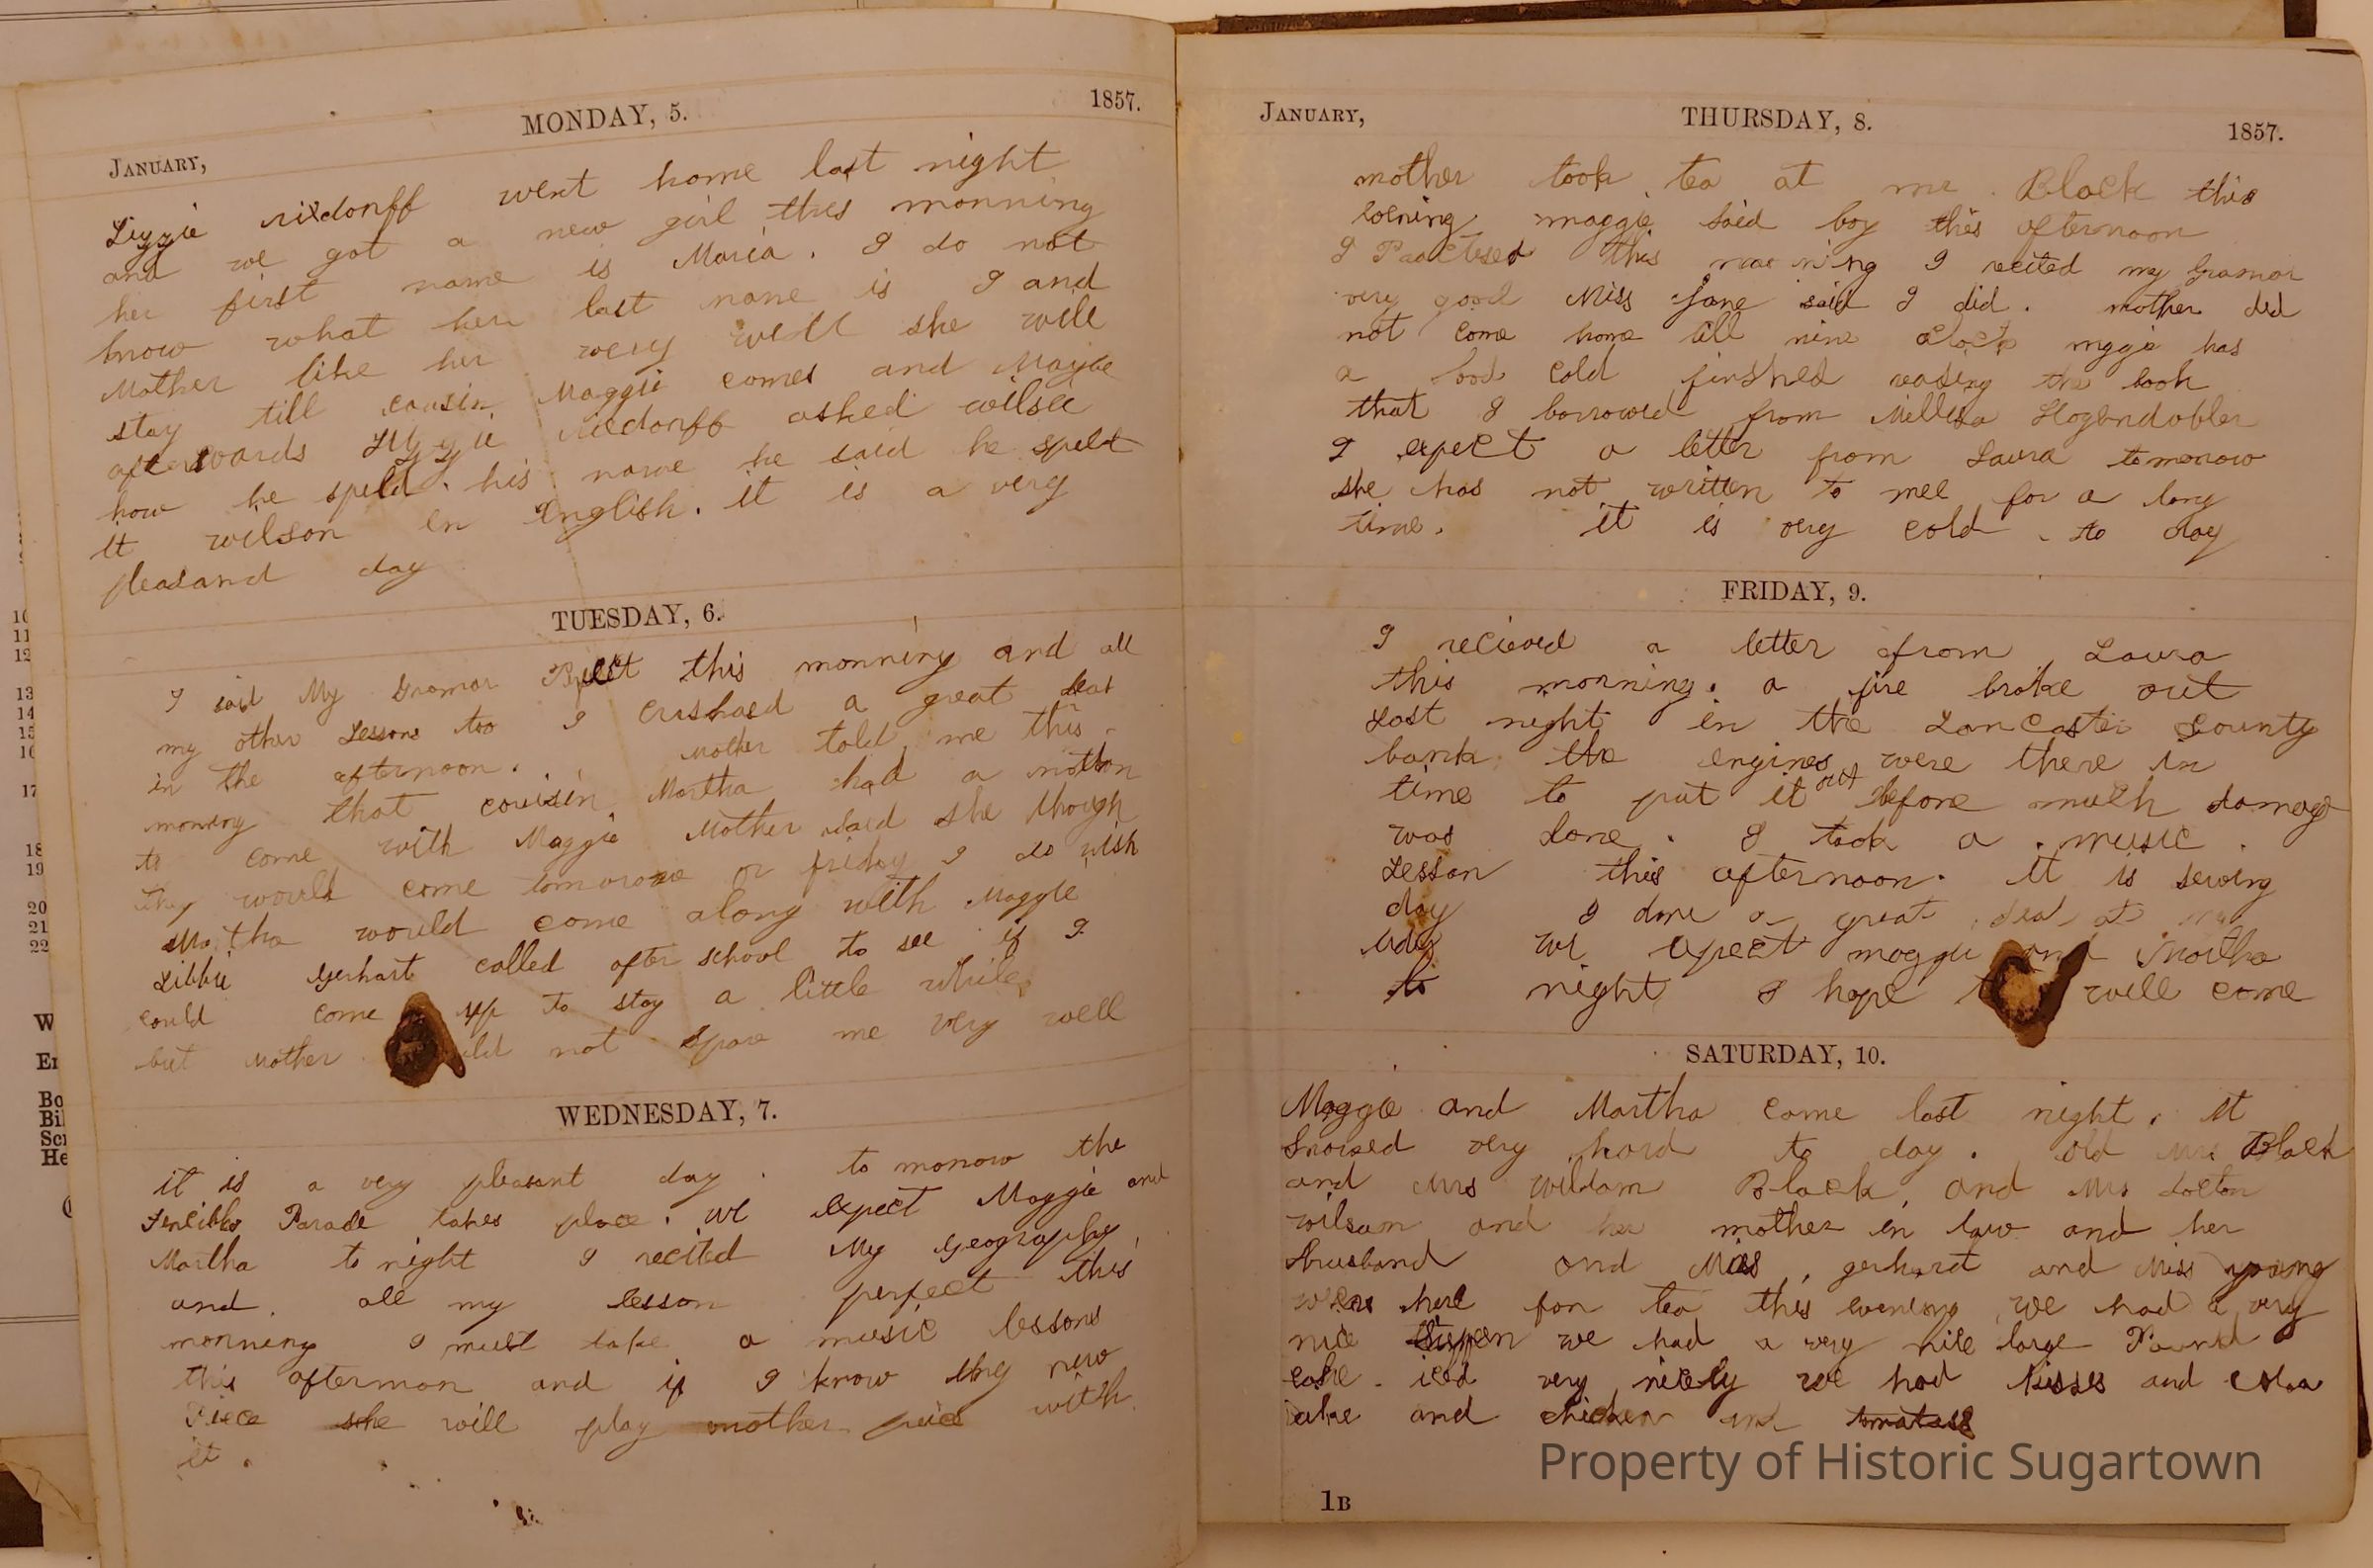 JANUARY, MONDAY, 5. 1857.
Lizzie nixdorff went home last night
and we got a new girl this monning
her first name is Maria. I do not
know what her last name is I and
Mother like her very well she will
stay till cousin Maggie comes and Maybe
afterwards Lizzie nixdorff asked
how he speld his name he said he spelt
it wilson in English. it is a very
pleasand day
TUESDAY, 6.
I said My Gramar this monning and all
my other Lessons too I a great deal
in the afternoon. Mother told me this
monning that cousin Martha had a notton
to come with Maggie Mother said she though
they would come tomorow or friday I do wish
Martha would come along with Maggie
Libbie Gerhart called after school to see if I
could come up to stay a little while
but Mother not spare me very well
WEDNESDAY, 7.
it is a very pleasant day. to monow the
Fencibles Parade takes place. we expect Maggie and
Martha to night I recited My Geography
and all my lesson perfect this
monning I must take a music lessons
this afternoon and if I know my new
Piece she will play another piece with
it.
JANUARY, THURSDAY, 8. 1857.
mother took tea at mr. Black this
evening maggie said boy this afternoon
I Practised this I recited my Gramar
very good Miss Jane said I did. mother did
not come home till nine clock has
a bad cold finshed reading the book
that I borrowed from Millisa
I expect a letter from Laura tomorow
she has not written to mee for a long
time. it is very cold to day
FRIDAY, 9.
I recieved a letter from Laura
this monning. a fire broke out
Last night in the Lancaster County
bank the engines were there in
time to put it out before much damage
was done. I took a music
Lesson this afternoon. it is sewing
day I done a great deal at
we expect maggie and Martha
to night I hope will come
SATURDAY, 10.
Maggie and Martha come last night. it
Snowed very hard to day. old Mrs Black
and Mrs William Black, and Mrs docton
wilson and her mother in law and her
husband and Miss gerhart and Miss young
were here for tea this evening we had a very
nice we had a very nice large Pound
cake iced very nicely we had kisses and
cake and chicken and
1B
Property of Historic Sugartown